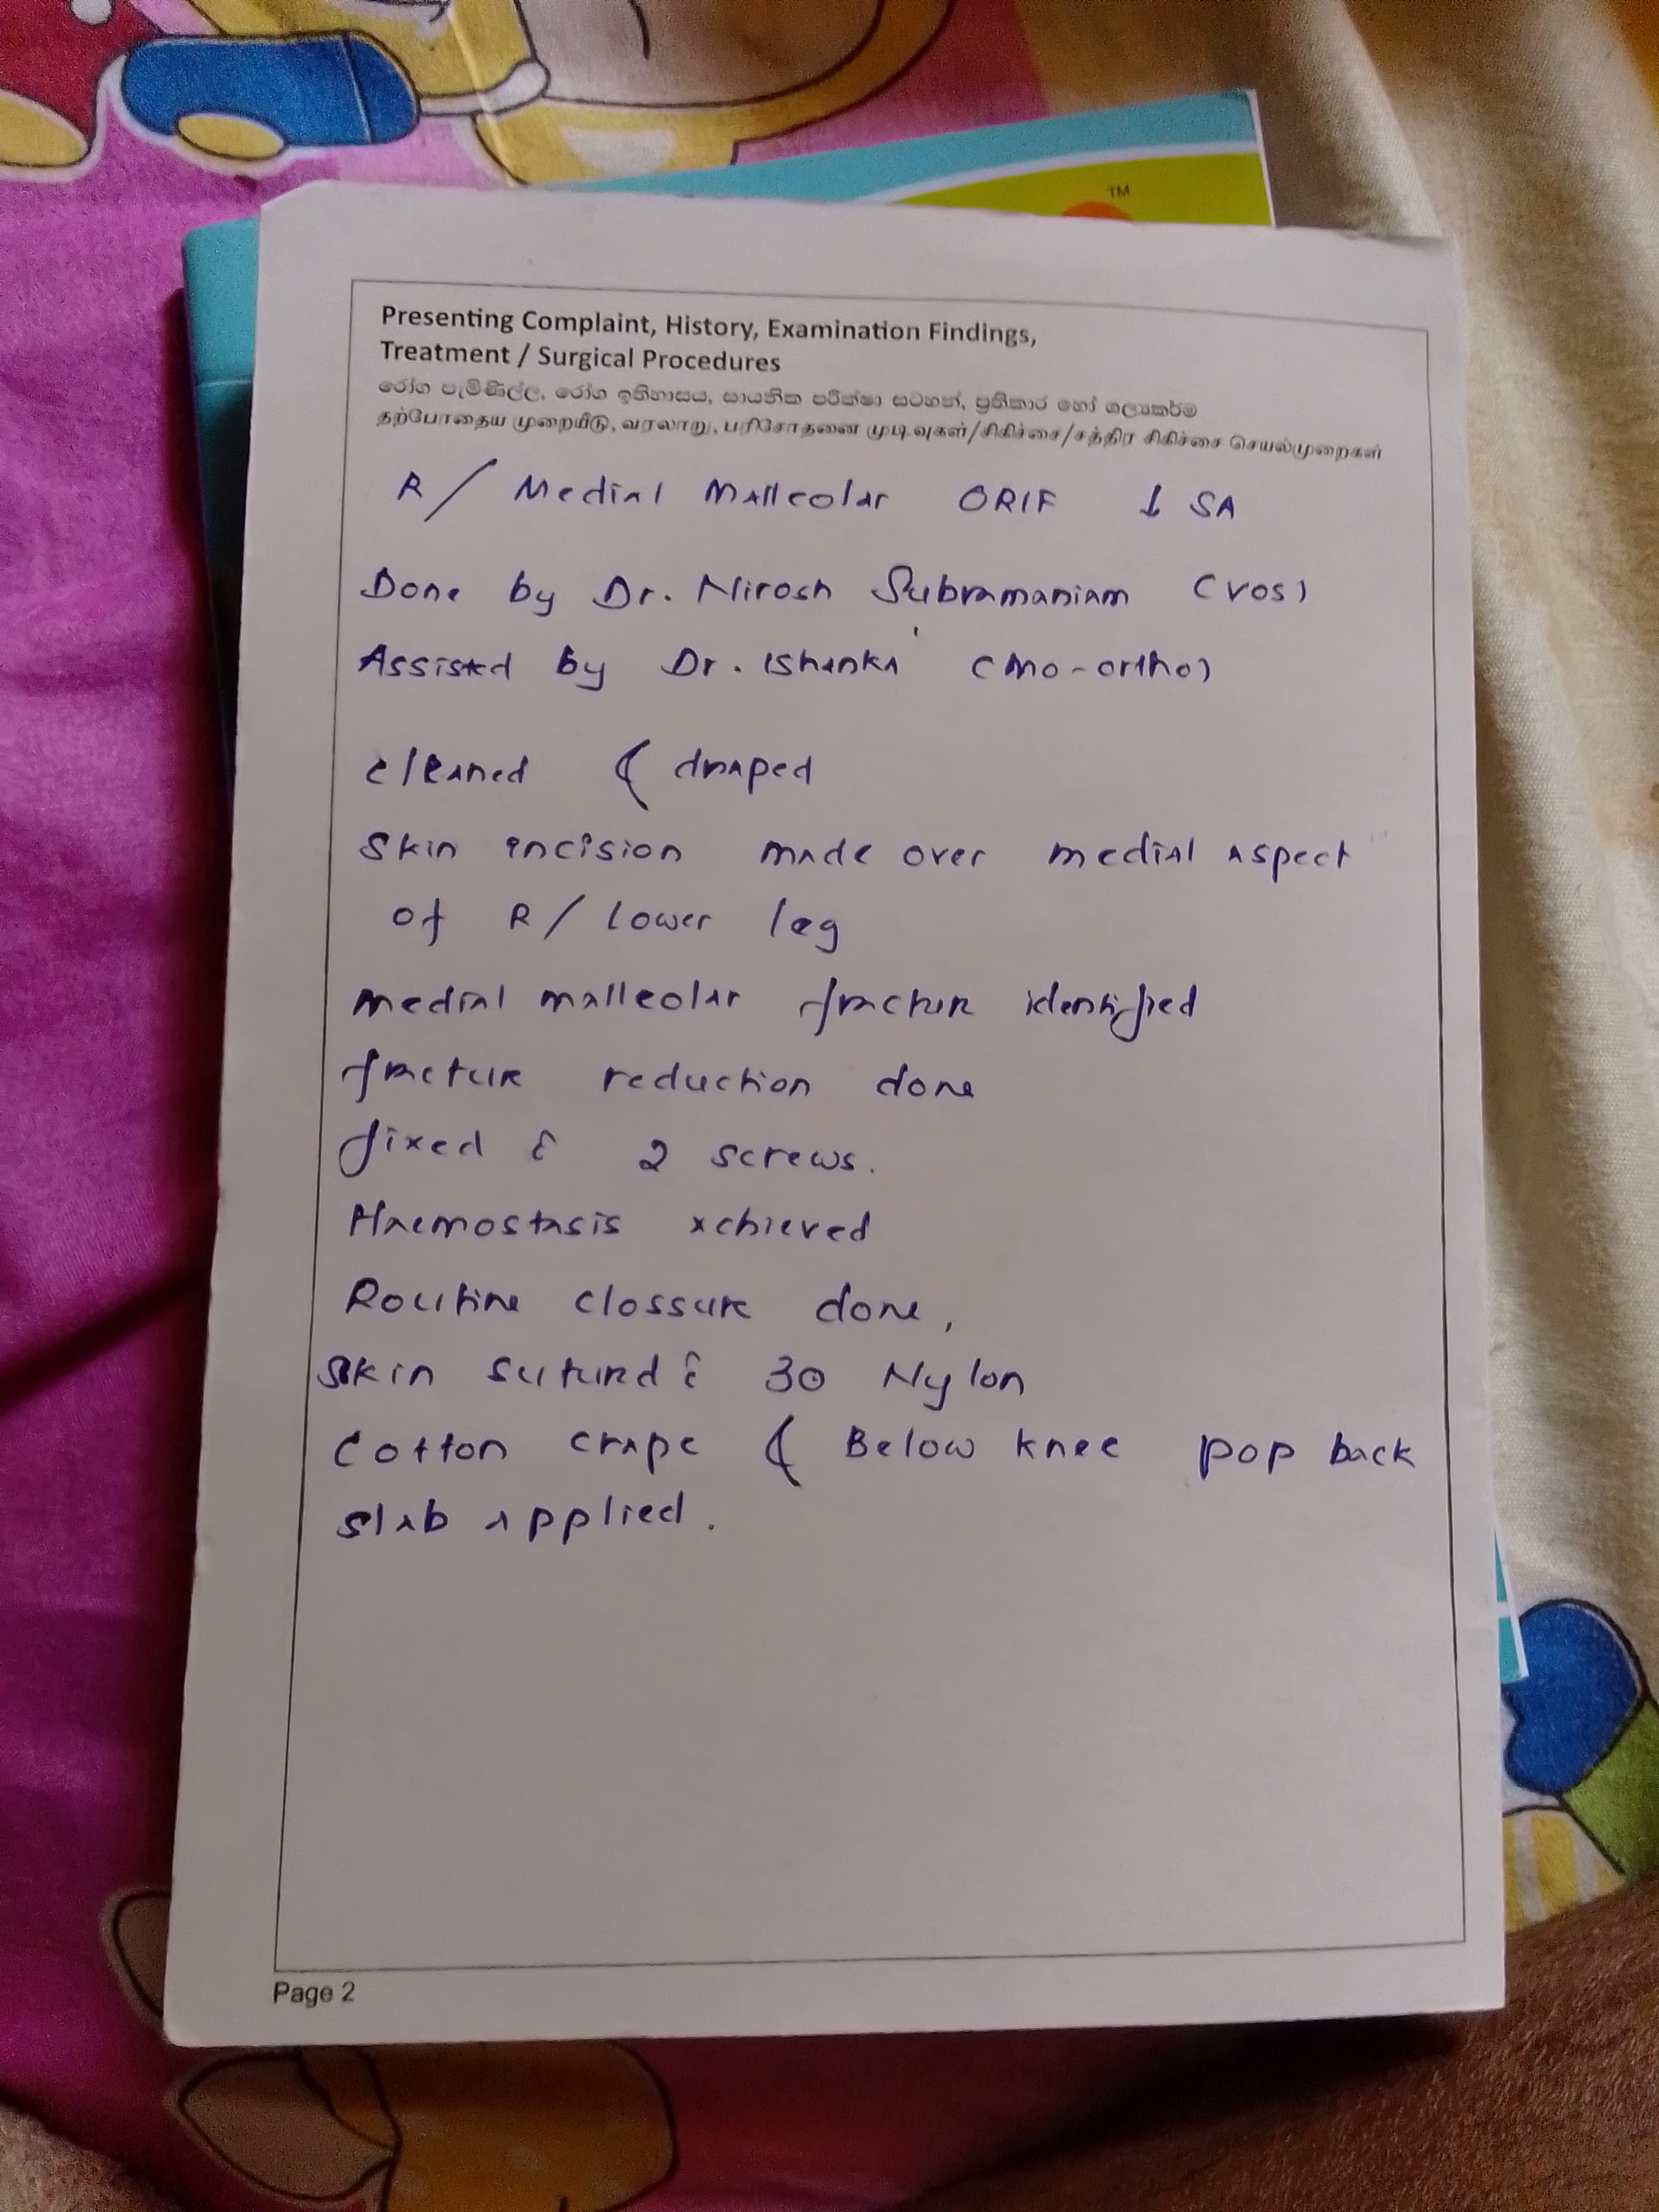 TM
Presenting Complaint, History, Examination Findings,
Treatment / Surgical Procedures
රෝග පැමිණිල්ල, රෝග ඉතිහාසය, සායනික පරීක්ෂා සටහන්, ප්‍රතිකාර හෝ ශල්‍යකර්ම
தற்போதைய முறையீடு, வரலாறு, பரிசோதனை முடிவுகள்/சிகிச்சை/சத்திர சிகிச்சை செயல்முறைகள்
R/ Medial Malleolar ORIF ↓ SA
Done by Dr. Nirosh Subramaniam (VOS)
Assisted by Dr. Ishanka (MO-ortho)
cleaned & draped
Skin incision made over medial aspect
of R/ lower leg
medial malleolar fracture identified
fracture reduction done
fixed c̄ 2 screws.
Haemostasis achieved
Routine clossure done,
Skin sutured c̄ 30 Nylon
Cotton crape & Below knee pop back
slab applied.
Page 2